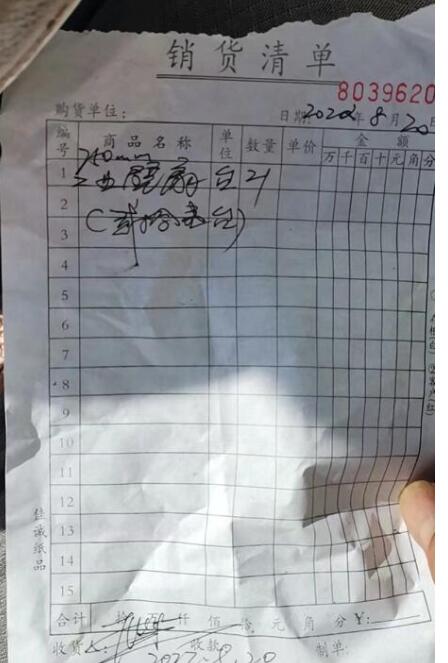 销货清单
8039620
购货单位： 日期2022年8月20日
编号 商品名称 单位 数量 单价 金额
万 千 百 十 元 角 分
1 750mm
工业壁扇 台 21
2
3
4
5
6
7
8
9
10
11
12
13
14
15
合计 拾 万 仟 佰 拾 元 角 分 ¥:
收货人: 收款 制单:
2022.8.20
佳诚纸品